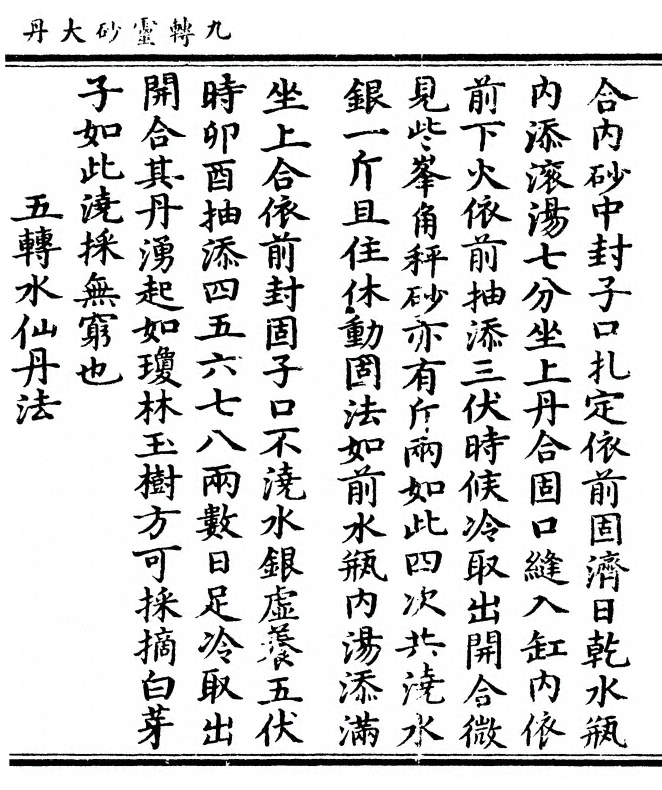 九轉靈砂大丹
合內砂中封子口扎定依前固濟日乾水瓶
內添滚湯七分坐上丹合固口縫入缸內依
前下火依前抽添三伏時候冷取出開合微
見些峯角秤砂亦有斤兩如此四次共澆水
銀一斤且住休動固法如前水瓶內湯添滿
坐上合依前封固子口不澆水銀虛養五伏
時卯酉抽添四五六七八兩數日足冷取出
開合其丹湧起如瓊林玉樹方可採摘白芽
子如此澆採無窮也
五轉水仙丹法